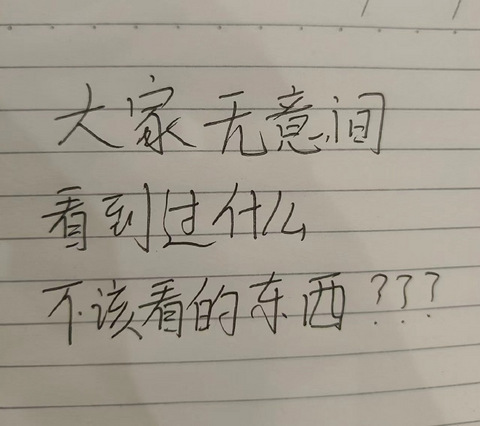 大家无意间
看到过什么
不该看的东西???